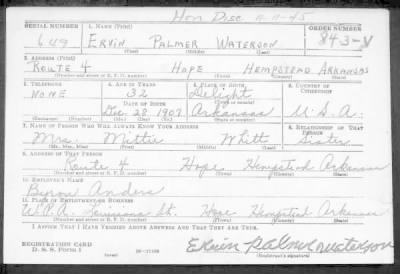 Hon Disc 11-11-45
SERIAL NUMBER 1. NAME (Print) ORDER NUMBER
649 ERVIN PALMER WATERSON 843 V
(First) (Middle) (Last)
2. ADDRESS (Print)
ROUTE 4 HOPE HEMPSTEAD ARKANSAS
(Number and street or R. F. D. number) (Town) (County) (State)
3. TELEPHONE 4. AGE IN YEARS 5. PLACE OF BIRTH 6. COUNTRY OF CITIZENSHIP
NONE 32 Delight U.S.A.
DATE OF BIRTH
Dec. 28 1907 Arkansas
7. NAME OF PERSON WHO WILL ALWAYS KNOW YOUR ADDRESS 8. RELATIONSHIP OF THAT PERSON
Mrs Mittie Whitt Sister
(Mr., Mrs., Miss) (First) (Middle) (Last)
9. ADDRESS OF THAT PERSON
Route 4 Hope Hempstead Arkansas
(Number and street or R. F. D. number) (Town) (County) (State)
10. EMPLOYER'S NAME
Byron Anders
11. PLACE OF EMPLOYMENT OR BUSINESS
W.P.A. Louisiana St. Hope Hempstead Arkansas
(Number and street or R. F. D. number) (Town) (County) (State)
I AFFIRM THAT I HAVE VERIFIED ABOVE ANSWERS AND THAT THEY ARE TRUE.
REGISTRATION CARD
D. S. S. Form 1
Ervin Palmer Waterson
(Registrant's signature)